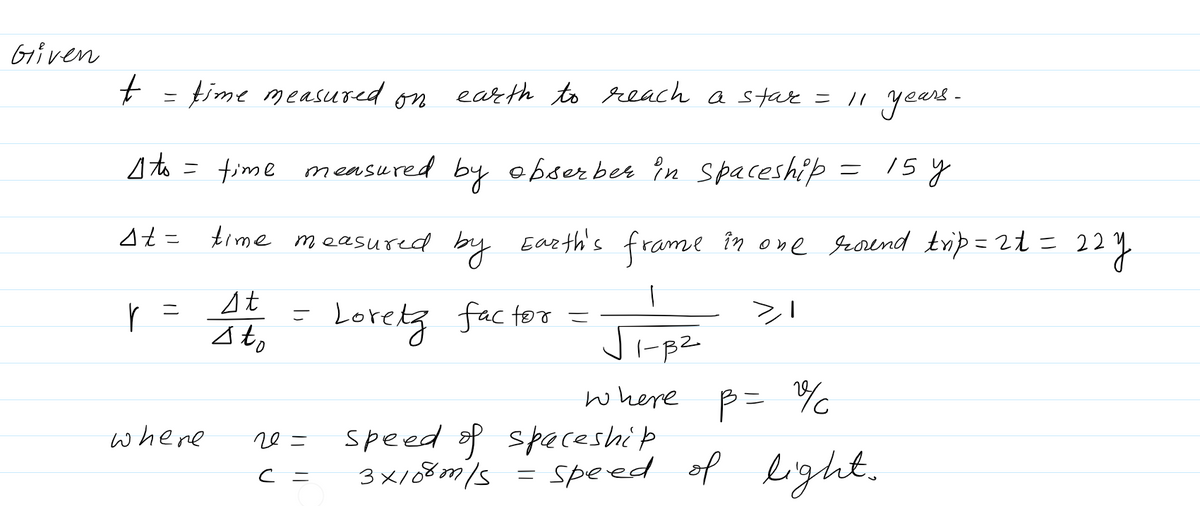 Given
t = time measured on earth to reach a star = 11 years.
Δt₀ = time measured by obserber in spaceship = 15 y
Δt = time measured by Earth's frame in one round trip = 2t = 22 y
γ = Δt/Δt₀ = Loretz factor = 1/√(1-β²) ⩾ 1
where β = v/c
where v = speed of spaceship
c = 3×10⁸ m/s = speed of light.